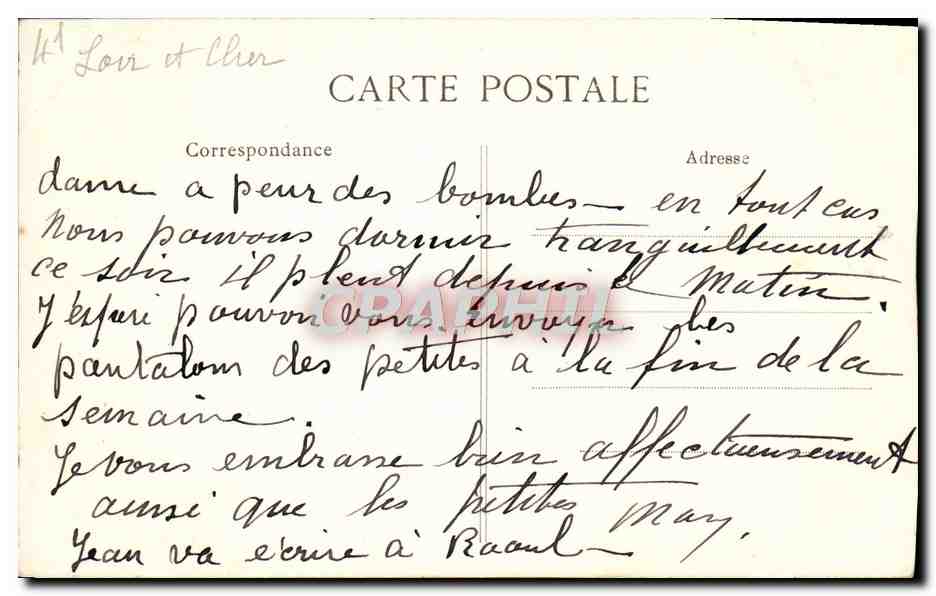 41 Loir et Cher
CARTE POSTALE
Correspondance
Adresse
dame a peur des bombes – en tout cas
Nous pouvons dormir tranquillement
ce soir il pleut depuis le Matin.
J'espère pouvoir vous envoyer les
pantalons des petites à la fin de la
semaine.
Je vous embrasse bien affectueusement
ainsi que les petites May.
Jean va écrire à Raoul –
CPAPHIL